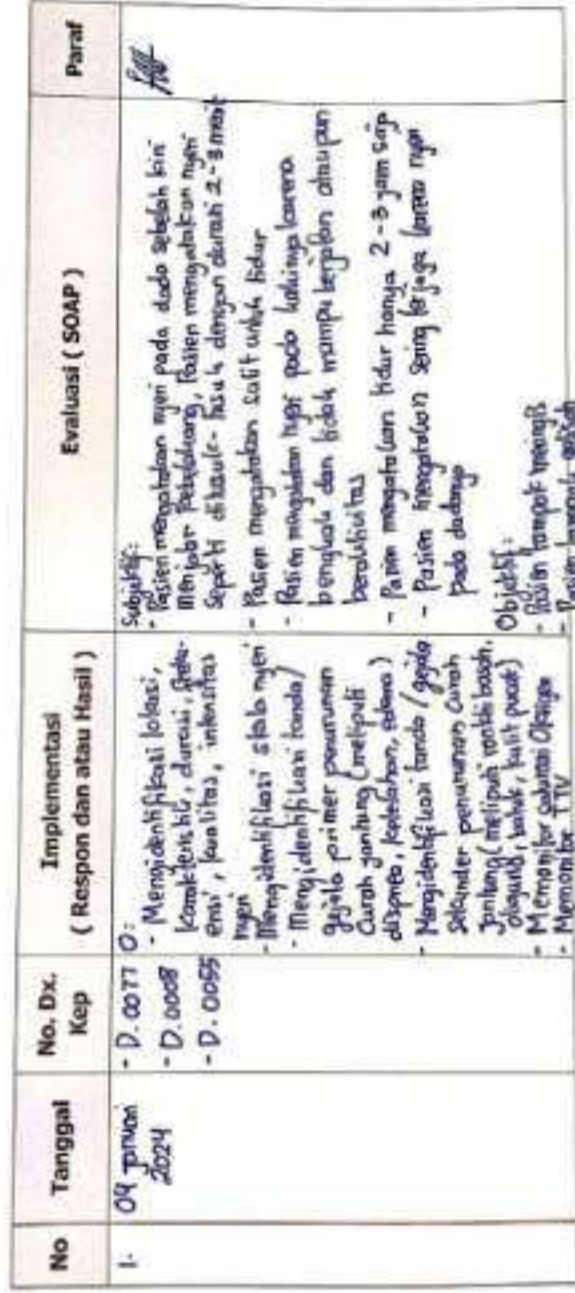 No
Tanggal
No. Dx.
Kep
Implementasi
( Respon dan atau Hasil )
Evaluasi ( SOAP )
Paraf
1.
09 januari
2024
- D. 0077
- D. 0008
- D. 0055
O:
- Mengidentifikasi lokasi,
karakteristik, durasi, freku-
ensi, kualitas, intensitas
nyeri
- Mengidentifikasi skala nyeri
- Mengidentifikasi tanda/
gejala primer penurunan
Curah jantung (meliputi
dispnea, kelelahan, edema)
- Mengidentifikasi tanda / gejala
sekunder penurunan Curah
jantung (meliputi ronkhi basah,
oliguria, batuk, kulit pucat)
- Memonitor saturasi Oksigen
- Memonitor TTV
Subjektif:
- Pasien mengatakan nyeri pada dada sebelah kiri
menjalar kebelakang, Pasien mengatakan nyeri
seperti ditusuk- tusuk dengan durasi 2-3 menit
- Pasien mengatakan sulit untuk tidur
- Pasien mengatakan nyeri pada kakinya karena
bengkak dan tidak mampu berjalan ataupun
beraktivitas
- Pasien mengatakan tidur hanya 2-3 jam saja
- Pasien mengatakan sering terjaga karena nyeri
pada dadanya
Objektif:
- Pasien tampak meringis
- Pasien tampak gelisah